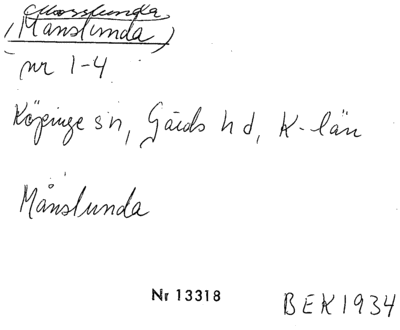 Mosslunda
(Månslunda)
nr 1-4
Köpinge sn, Gärds hd, K-län
Månslunda
Nr 13318
BEK 1934